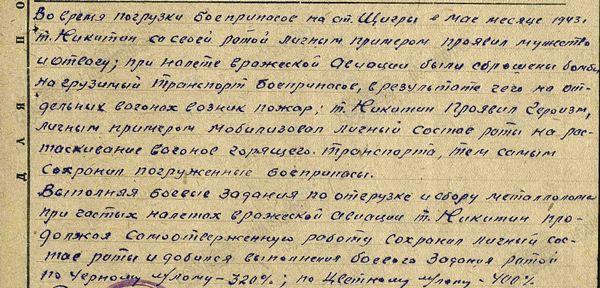 Во время погрузки боеприпасов на ст. Щигры в мае месяце 1943г
т. Никитин со своей ротой личным примером проявил мужество
и отвагу; при налете вражеской авиации были сброшены бомбы
на грузимый транспорт боеприпасов, в результате чего на от-
дельных вагонах возник пожар; т. Никитин проявил героизм,
личным примером мобилизовал личный состав роты на рас-
таскивание вагонов горящего транспорта, тем самым
сохранил погруженные боеприпасы.
Выполняя боевые задания по отгрузке и сбору металлолома
при частых налетах вражеской авиации т. Никитин про-
должая самоотверженную работу сохранил личный сос-
тав роты и добился выполнения боевого задания ротой
по черному лому - 320%; по цветному лому - 400%
ДЛЯ ПО